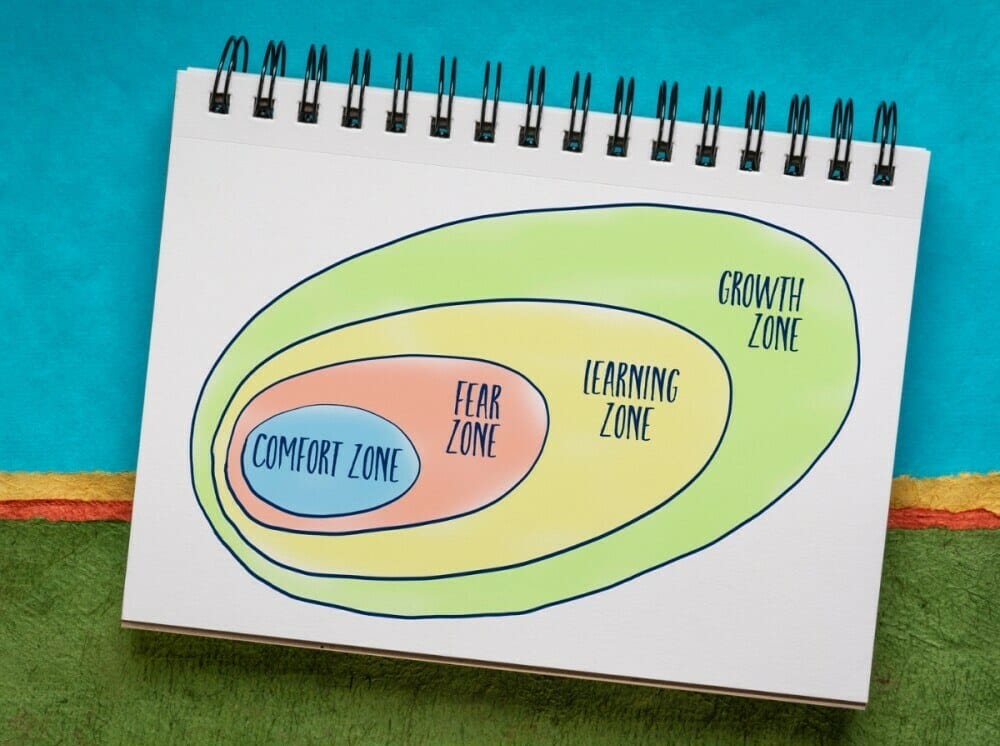 COMFORT ZONE
FEAR
ZONE
LEARNING
ZONE
GROWTH
ZONE